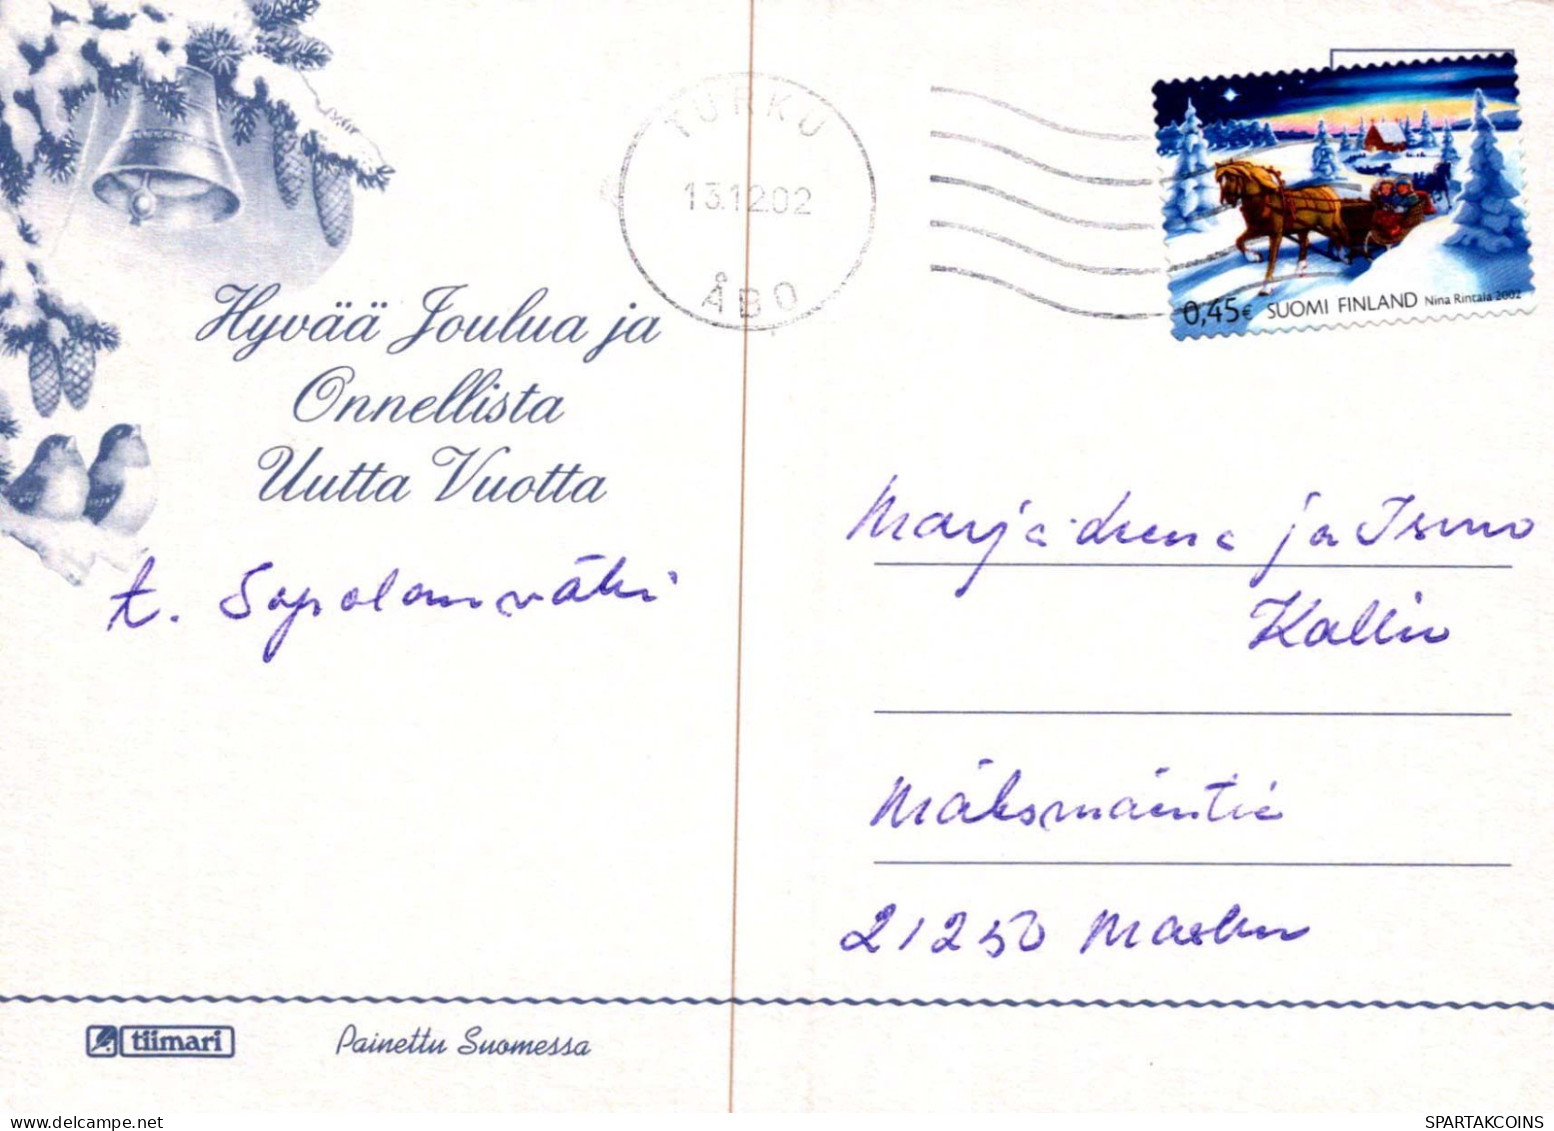 TURKU
13.12.02
ÅBO
0,45€ SUOMI FINLAND Nina Rintala 2002
Hyvää Joulua ja
Onnellista
Uutta Vuotta
t. Sopolanväki
Marja-Leena ja Ismo
Kallio
Mäksmäentie
21250 Masku
tiimari
Painettu Suomessa
delcampe.net
SPARTAKCOINS